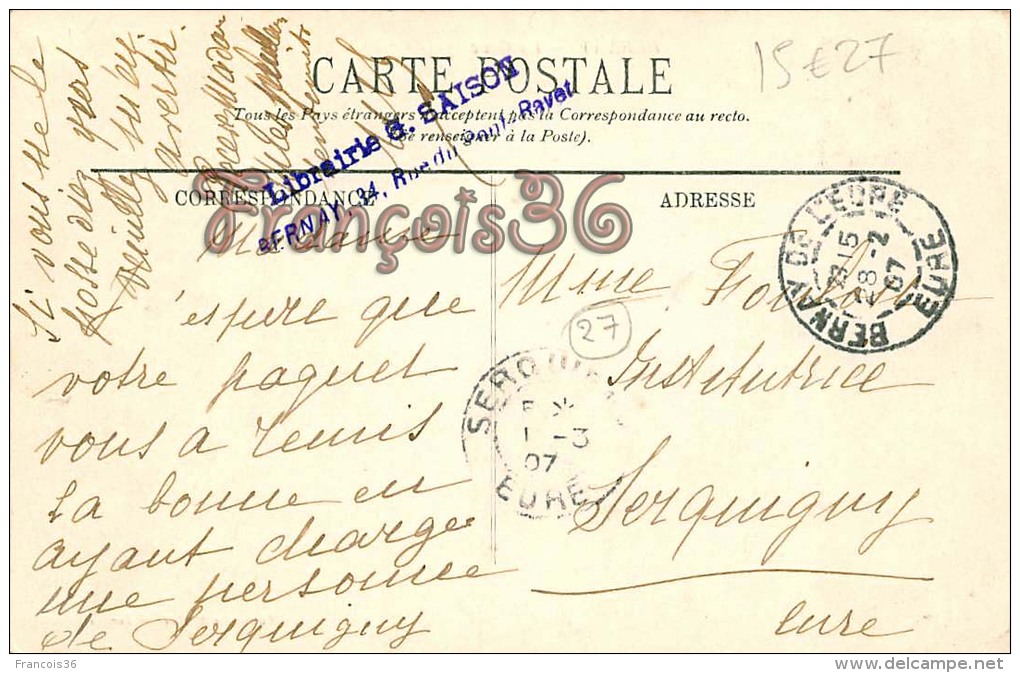 CARTE POSTALE
Tous les Pays étrangers n'acceptent pas la Correspondance au recto.
(Se renseigner à la Poste).
CORRESPONDANCE
ADRESSE
Librairie G. SAISON
BERNAY, 34, Rue du Pont-Ravet
15€27
François36
BERNAY DE L'EURE
EURE
28-2
07
27
SERQUIGNY
1-3
07
EURE
Mme
Institutrice
Serquigny
Eure
Madame
espère que
votre paquet
vous a remis
la bonne en
ayant chargé
une personne
de Serquigny
Si vous ne le
possédiez pas
veuillez
avertir.
François36
delcampe.net